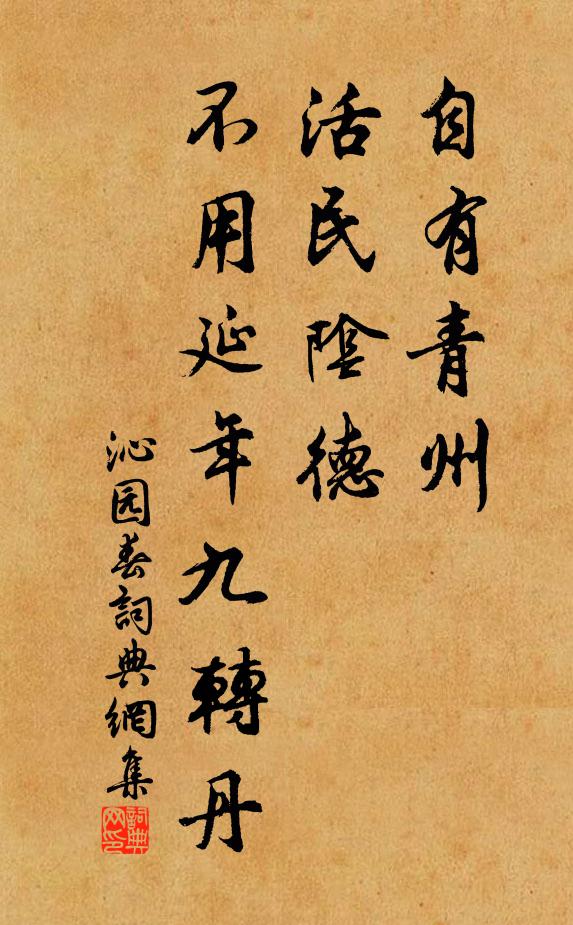 自有青州
活民陰德
不用延年九轉丹
沁园春詞典網集
詞典网印